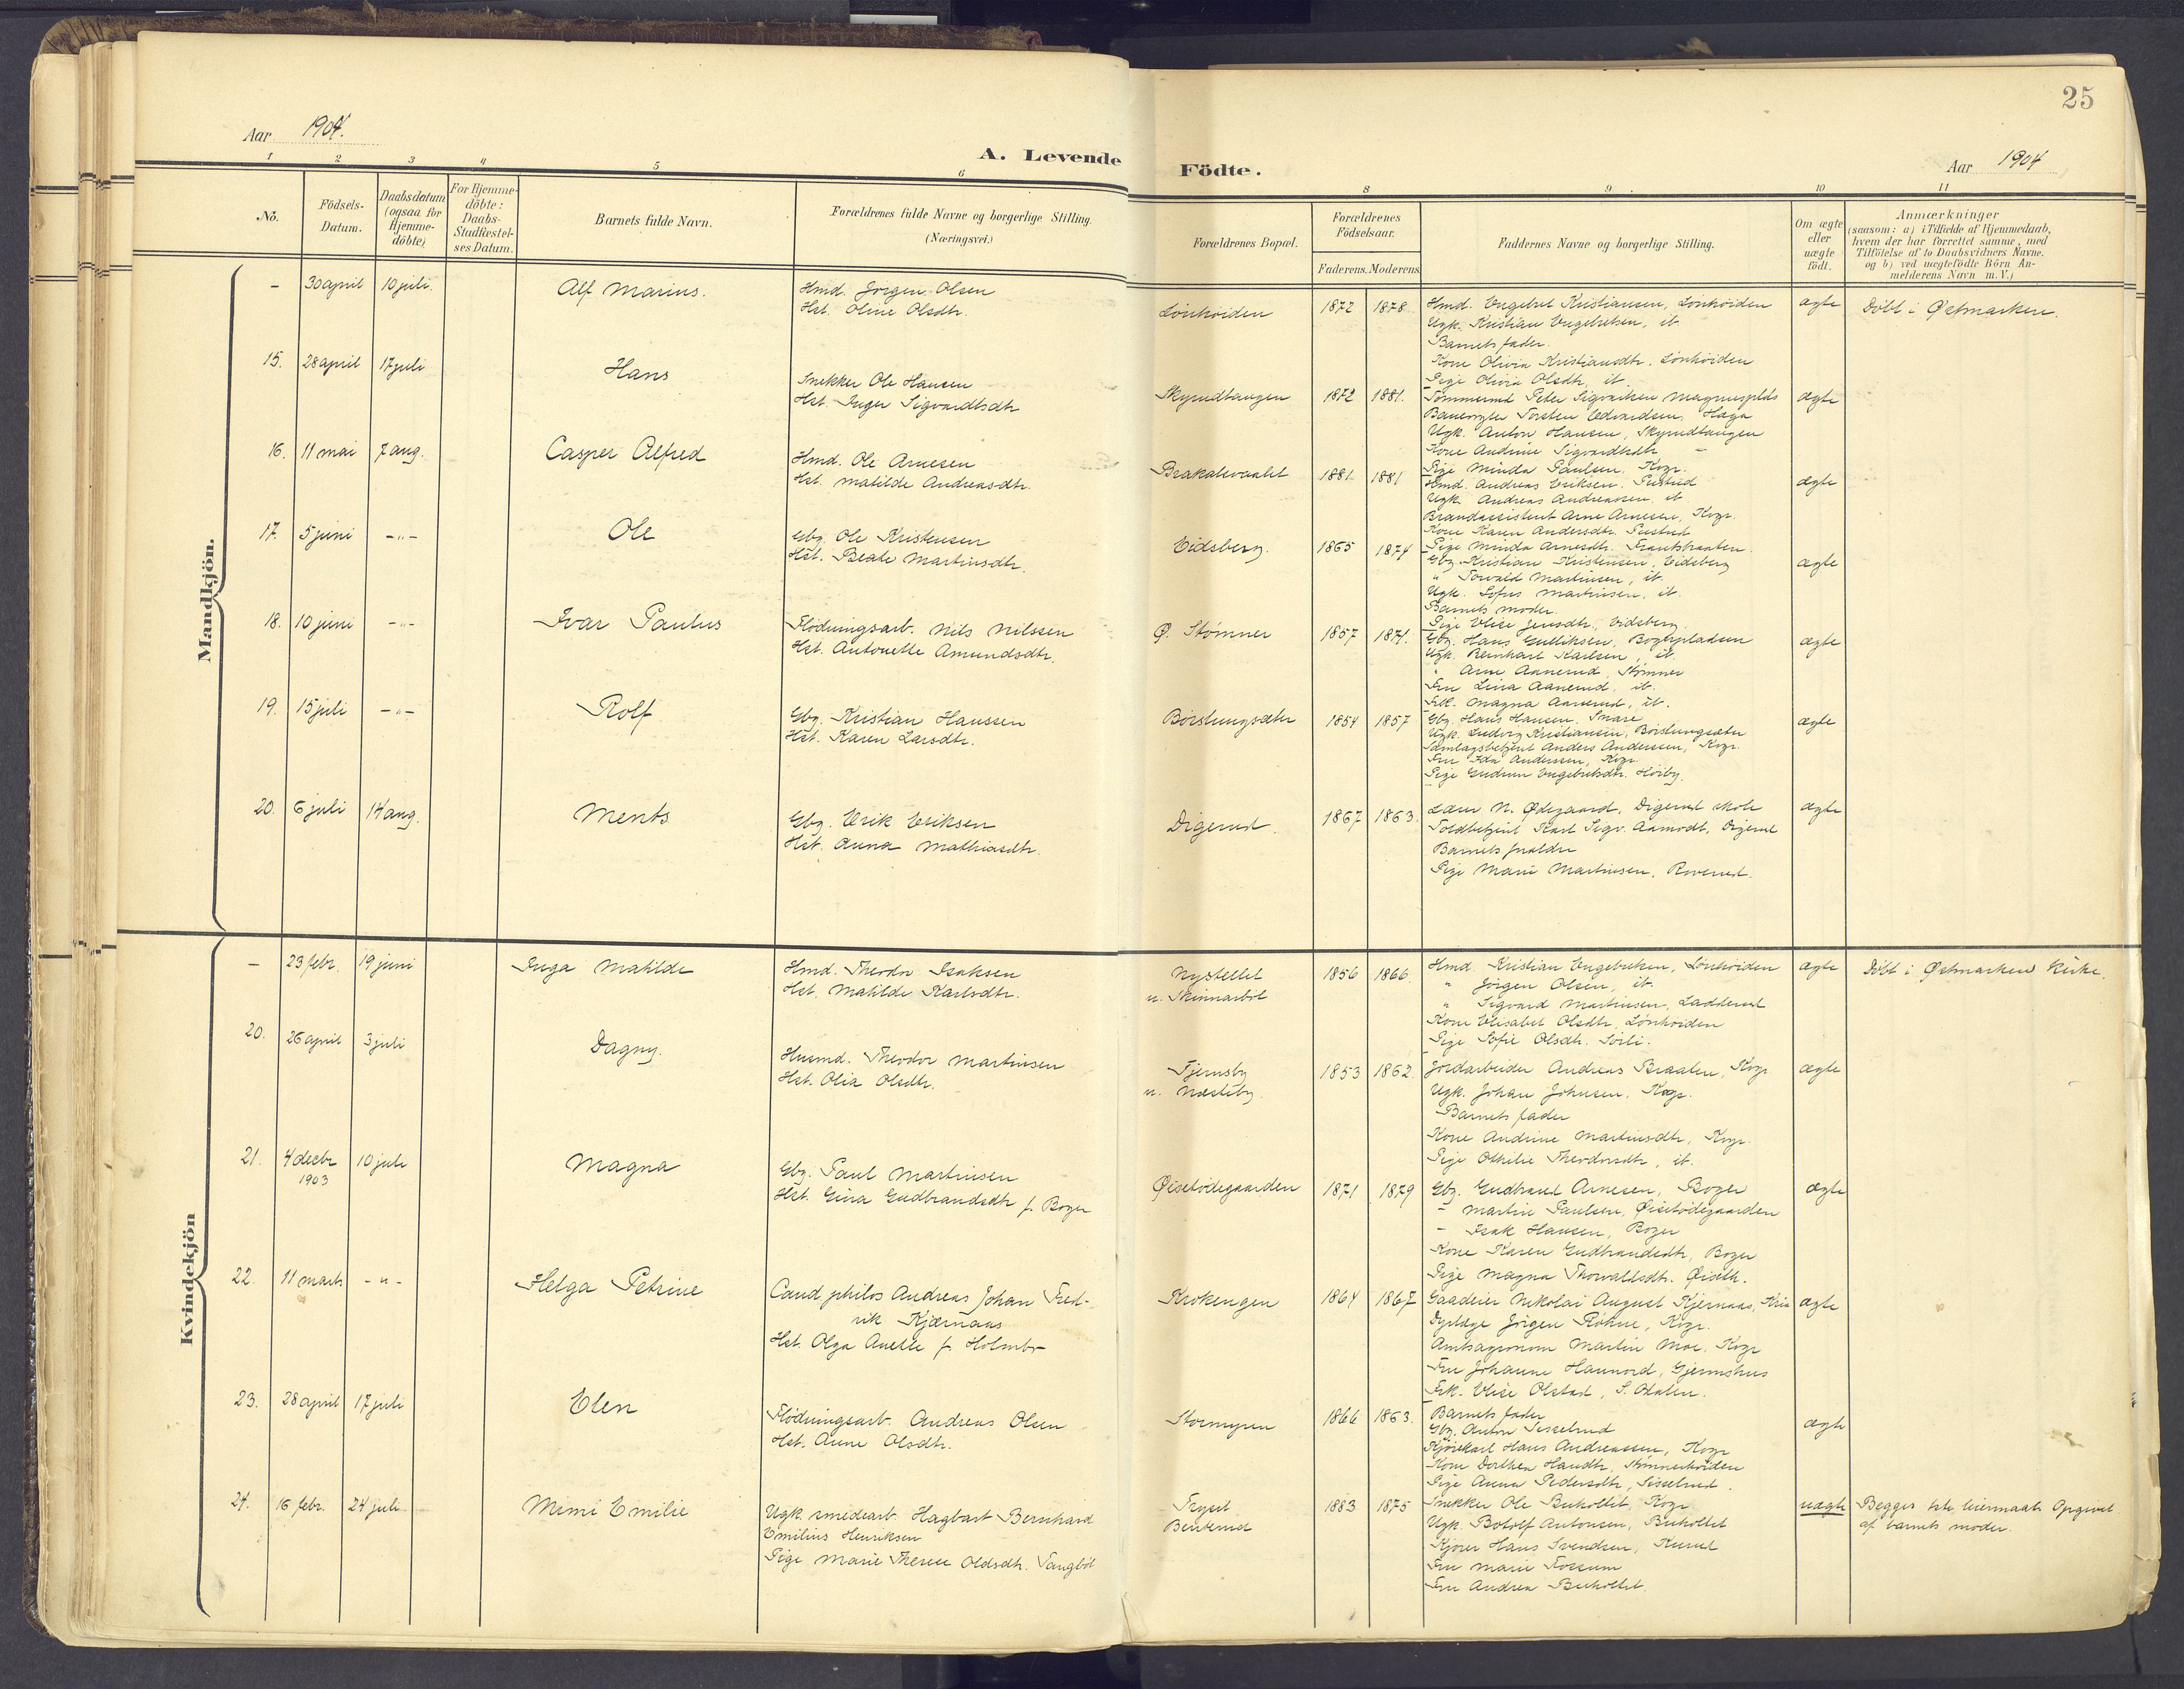 25
Aar 1904.
A. Levende Födte.
Aar 1904
1 2 3 4 5 6 8 9 10 11
No.
Födsels-Datum.
Daabsdatum (ogsaa for Hjemme-döbte)
For Hjemme-döbte: Daabs-Stadfæstel-ses Datum.
Barnets fulde Navn.
Forældrenes fulde Navne og borgerlige Stilling. (Næringsvei.)
Forældrenes Bopæl.
Forældrenes Födselsaar.
Faderens. Moderens.
Faddernes Navne og borgerlige Stilling.
Om ægte eller uægte födt.
Anmærkninger
(saasom: a) i Tilfælde af Hjemmedaab,
hvem der har forrettet samme, med
Tilföielse af to Daabsvidners Navne.
og b) ved uægtefödte Börn An-
melderens Navn m. V.)
Mandkjön.
- 30 april 10 juli. Alf Marius.
Hmd. Jörgen Olsen
Hst. Oline Olsdtr.
Lönhöiden 1872 1878
Hmd. Engebret Kristiansen, Lönhöiden
Ugk. Kristian Engebretsen, ib.
Barnets fader.
Kone Olivia Kristiansdtr. Lönhöiden
Pige Olivia Olsdtr. ib.
ægte Döbt i Østmarken.
15. 28 april 17 juli Hans
Snekker Ole Hansen
Hst. Inger Sigvardtsdtr
Skyrudtangen 1872 1881.
Tömmermd Peter Sigvartsen Magnusplds
Torsten Edvardsen, Haga
Ugk. Anton Hansen, Skyrudtangen
Kone Andrine Sigvardtsdtr -
Pige Minda Paulsen, Kogr.
ægte
16. 11 mai 7 aug. Casper Alfred
Hmd. Ole Arnesen
Hst. Matilde Andreasdtr.
Brakalsvaalet 1881 1881
Hmd. Andreas Eriksen,
Ugk. Andreas Andreassen, ib
Brandassistent Arne Arnesen, Kogr.
Kone Karen Andersdtr.
Pige Minda Arnesdtr.
ægte
17. 5 juni -"- Ole
Gbg. Ole Kristensen
Hst. Beate Martinsdtr.
Eidsberg. 1865 1874
Gbg. Kristian Kristensen, Eidsberg
" Torvald Martinsen, ib.
Ugk. Sofus Martinsen, ib.
Barnets moder.
Pige Elise Jensdtr, Eidsberg.
ægte
18. 10 juni -"- Ivar Paulus
Flödningsarb. Nils Nilssen
Hst. Antonette Amundsdtr.
Ø. Stømner 1857 1871.
Gbg. Hans Gulliksen, Bogerpladsen
Ugk. Reinhart Karlsen, ib.
" Arne Aanerud, Stømner
Fru Lina Aanerud, ib.
Frk. Magna Aanerud, ib.
ægte
19. 15 juli -"- Rolf
Gbg. Kristian Hanssen
Hst. Karen Larsdtr.
Börslungsæter 1854 1857
Gbg. Hans Hansen, Snare
Ugk. Ludvig Kristiansen, Börslungsæter
Samlagsbetjent Anders Anderssen, Kogr.
Fru Ida Andersen, Kogr.
Pige Gudrun Engebretsdtr. Höiby.
ægte
20. 6 juli 14 aug. Ments
Gbg. Erik Eriksen
Hst. Anna Mathiasdtr.
Digerud. 1867 1863.
Lærer N. Ødegaard, Digerud skole
Toldbetjent Karl Sigv. Aamodt, Digerud
Barnets forældre
Pige Marie Martinsen, Roverud.
ægte
Kvindekjön
- 23 febr. 19 juni Inga Matilde
Hmd. Theodor Isaksen
Hst. Matilde Karlsdtr.
Nystellet
u. Skinnarböl
1856 1866
Hmd. Kristian Engebretsen, Lönhöiden
" Jörgen Olsen, ib.
" Sigvard Martinsen, Ladderud
Kone Elisabet Olsdtr, Lönhöiden
Pige Sofie Olsdtr. Sörli.
ægte Döbt i Østmarkens Kirke.
20. 26 april 3 juli Dagny.
Husmd. Theodor Martinsen
Hst. Olia Olsdtr.
Tjernsby
u. Næsteby.
1853 1862.
Jordarbeider Andreas Braaten, Kogr
Ugk. Johan Johnsen, Kogr.
Barnets fader
Kone Andrine Martinsdtr, Kogr.
Pige Othilie Theodorsdtr, ib.
ægte
21. 4 decbr 1903 10 juli Magna
Gbg. Paul Martinsen
Hst. Gina Gudbrandsdtr f. Boger
Øisetödegaarden 1871 1879
Gbg. Gudbrand Arnesen, Boger
- Martin Paulsen, Øisetödegaarden
- Isak Hansen, Boger
Kone Karen Gudbrandsdtr, Boger
Pige Magna Thorvaldsdtr. Øiseth.
ægte
22. 11 marts -"- Helga Petrine
Cand. philos Andreas Johan Fred-
rik Kjærnaas
Hst. Olga Anette f. Holmbo
Krokengen 1864 1867
Gaardeier Nikolai August Kjernaas, Kria
Dyrlæge Jörgen Röhne, Kogr.
Amtsagronom Martin Moe, Kogr
Fru Johanne Hannord, Gjermshus
Frk. Elise Olstad, S. Odalen.
ægte
23. 28 april 17 juli Elen
Flödningsarb. Andreas Olsen
Hst. Anne Olsdtr.
Stormyren 1866 1863.
Barnets fader
Gbg. Anton Sisselrud
Kjörekarl Hans Andreassen, Kogr
Kone Dorthea Hansdtr, Stömnerhöiden
Pige Anna Pedersdtr, Sisselrud.
ægte
24. 16 febr. 24 juli Mimi Emilie
Ugk. smedearb. Hagbart Bernhard
Emilius Henriksen
Pige Marie Therese Oldsdtr. Vangböl
Trysil
1883 1875
Snekker Ole Buholtet, Kogr
Ugk. Botolf Antonsen, Buholtet
Kjörer Hans Svendsen,
Fru Marie Fossum
Fru Andrea Buholtet.
uægte
Begges 1ste leiermaal. Opgivet
af barnets moder.